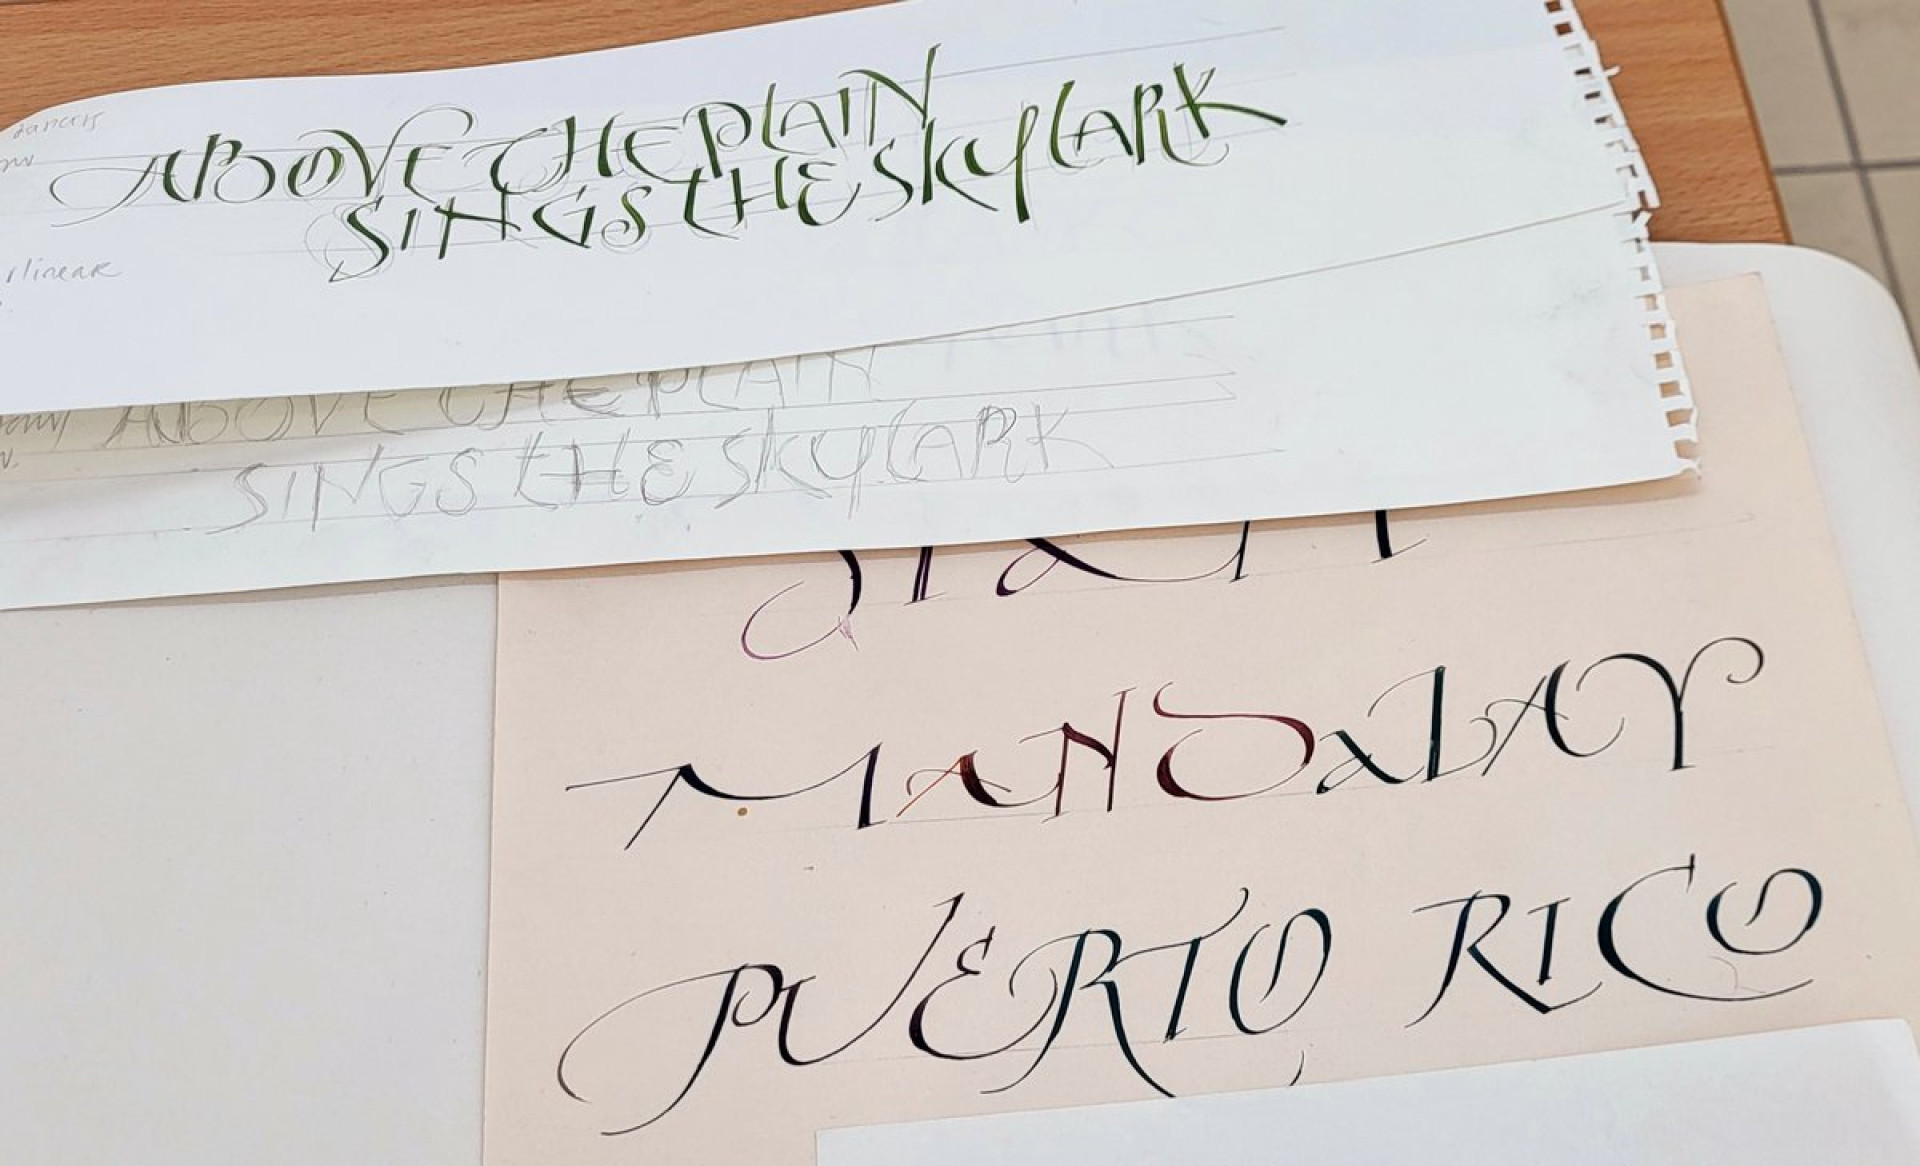 ABOVE THE PLAIN
SINGS THE SKYLARK
rlinear
ABOVE THE PLAIN
SINGS THE SKYLARK
MANDALAY
PUERTO RICO